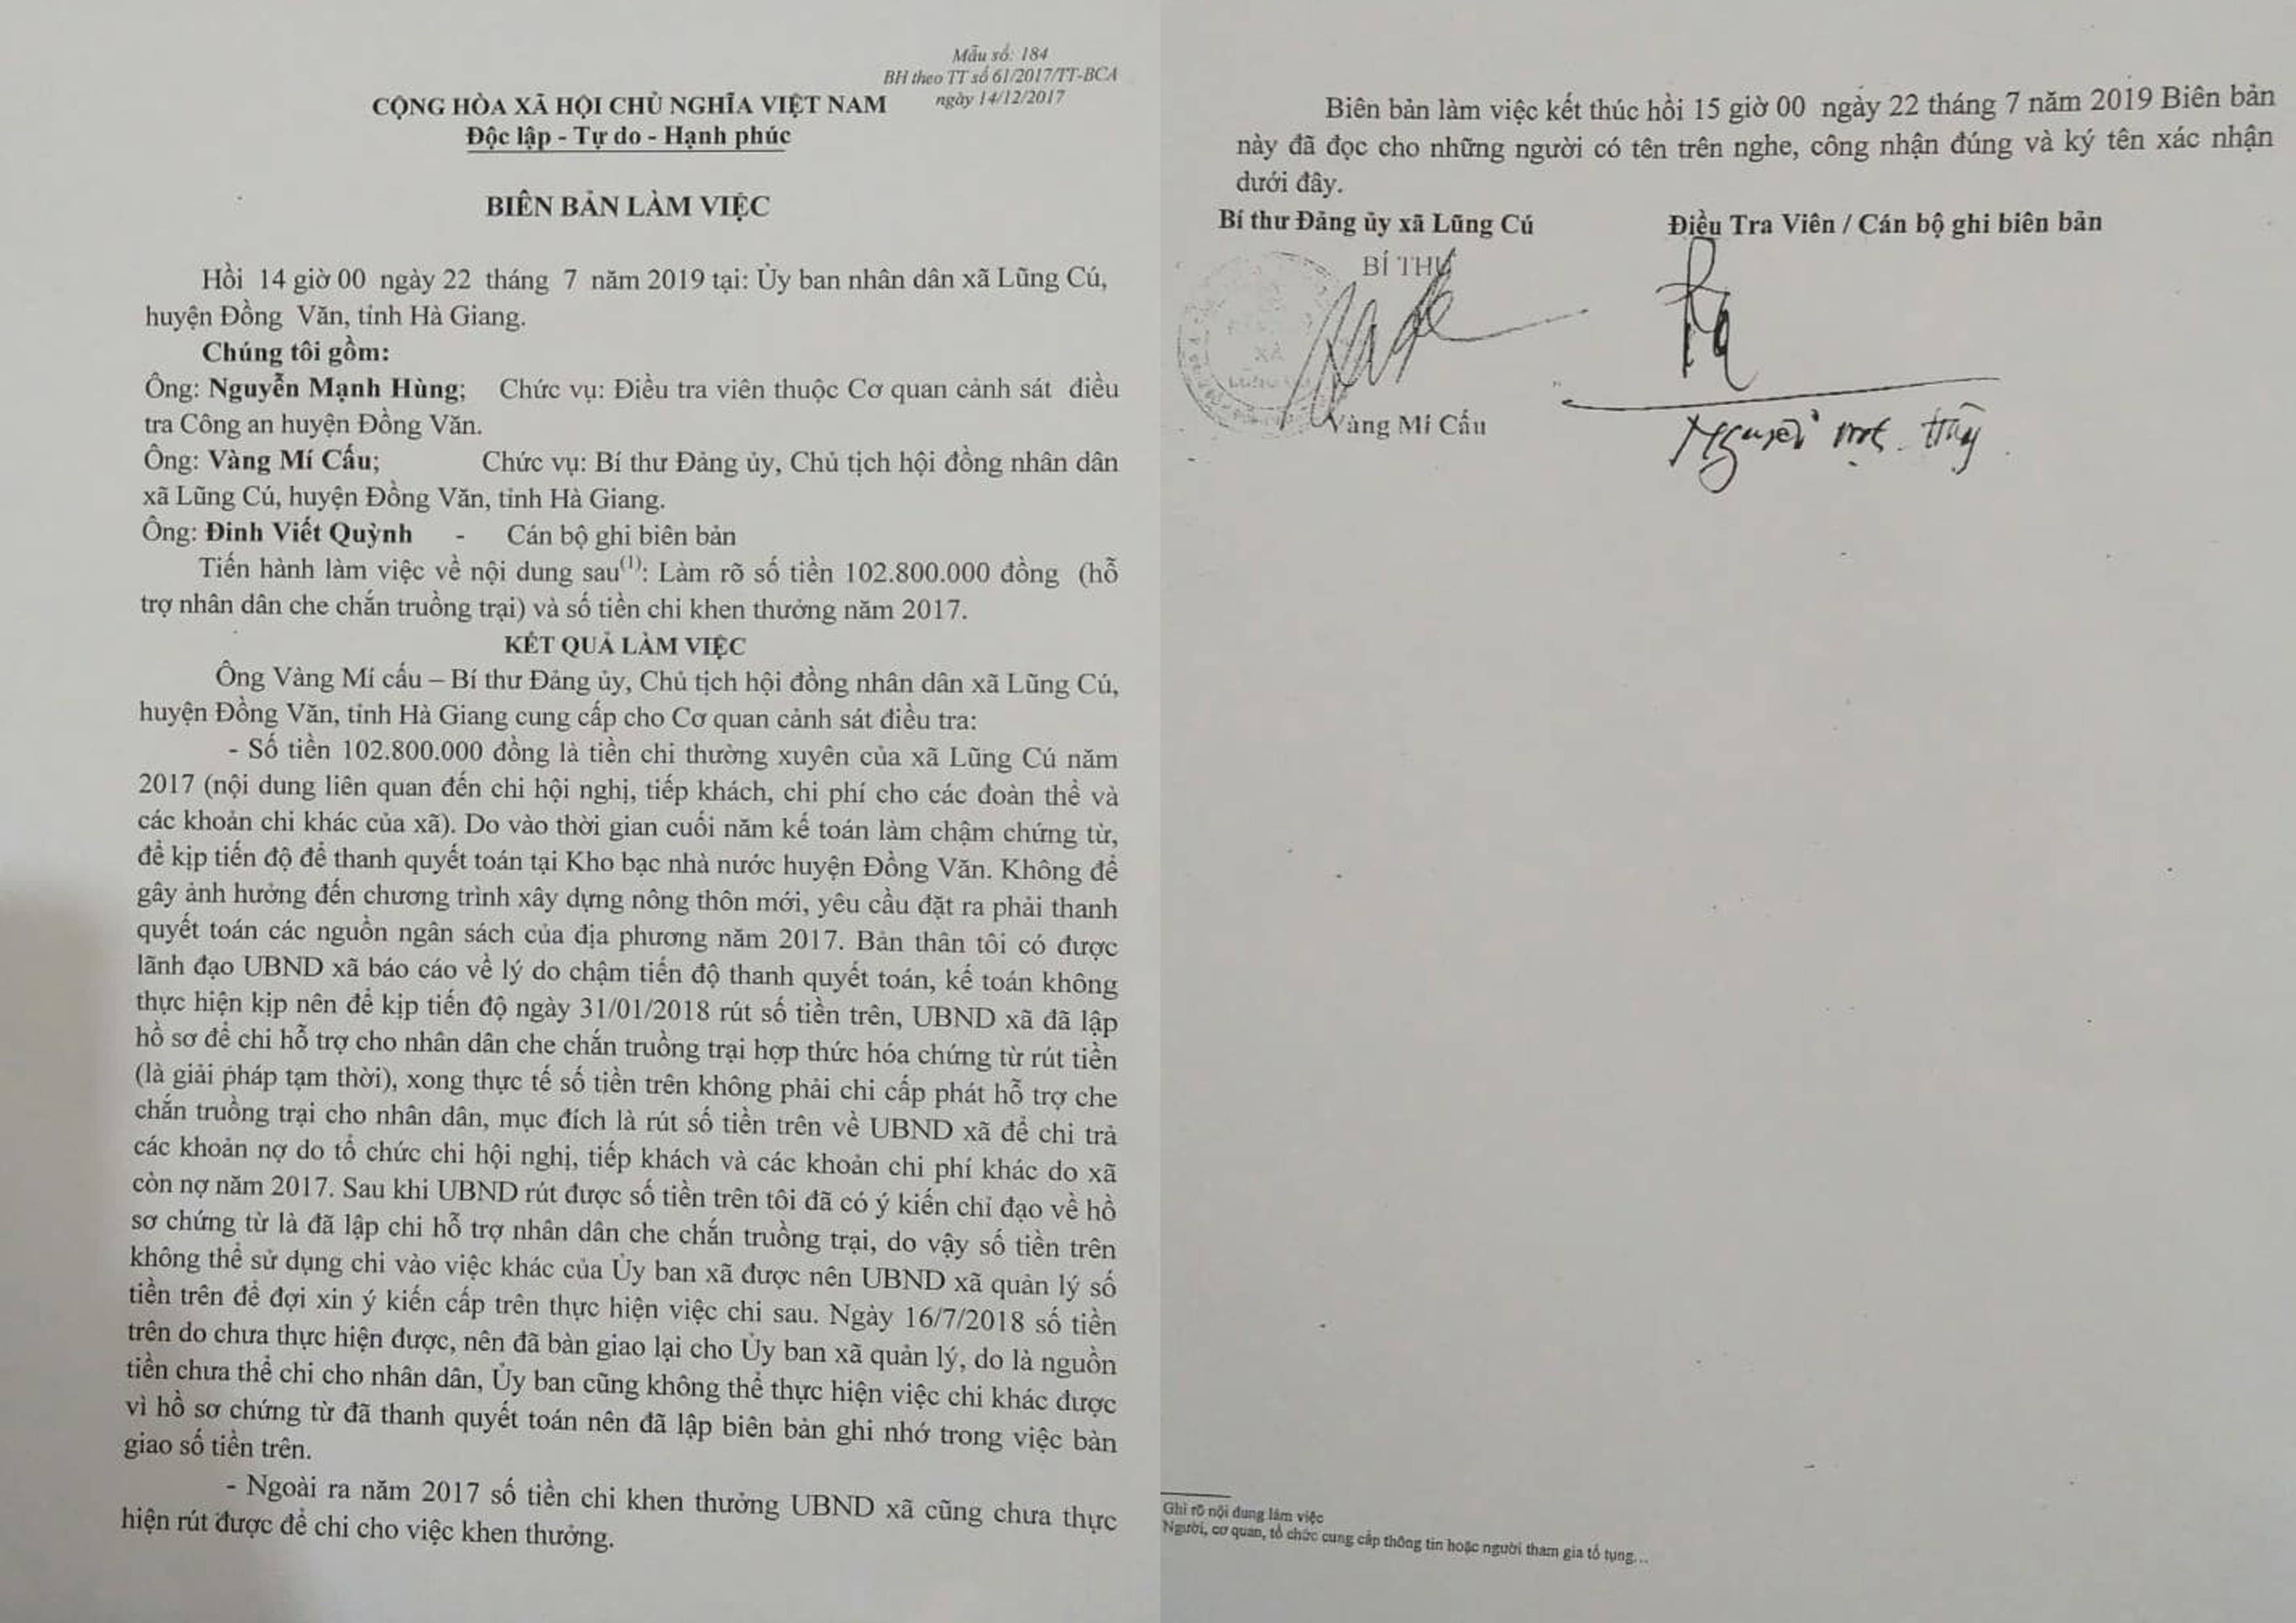 Mẫu số: 184
BH theo TT số 61/2017/TT-BCA
ngày 14/12/2017
CỘNG HÒA XÃ HỘI CHỦ NGHĨA VIỆT NAM
Độc lập - Tự do - Hạnh phúc
BIÊN BẢN LÀM VIỆC
Hồi 14 giờ 00 ngày 22 tháng 7 năm 2019 tại: Ủy ban nhân dân xã Lũng Cú,
huyện Đồng Văn, tỉnh Hà Giang.
Chúng tôi gồm:
Ông: Nguyễn Mạnh Hùng; Chức vụ: Điều tra viên thuộc Cơ quan cảnh sát điều
tra Công an huyện Đồng Văn.
Ông: Vàng Mí Cấu; Chức vụ: Bí thư Đảng ủy, Chủ tịch hội đồng nhân dân
xã Lũng Cú, huyện Đồng Văn, tỉnh Hà Giang.
Ông: Đinh Viết Quỳnh - Cán bộ ghi biên bản
Tiến hành làm việc về nội dung sau(1): Làm rõ số tiền 102.800.000 đồng (hỗ
trợ nhân dân che chắn truồng trại) và số tiền chi khen thưởng năm 2017.
KẾT QUẢ LÀM VIỆC
Ông Vàng Mí cấu – Bí thư Đảng ủy, Chủ tịch hội đồng nhân dân xã Lũng Cú,
huyện Đồng Văn, tỉnh Hà Giang cung cấp cho Cơ quan cảnh sát điều tra:
- Số tiền 102.800.000 đồng là tiền chi thường xuyên của xã Lũng Cú năm
2017 (nội dung liên quan đến chi hội nghị, tiếp khách, chi phí cho các đoàn thể và
các khoản chi khác của xã). Do vào thời gian cuối năm kế toán làm chậm chứng từ,
để kịp tiến độ để thanh quyết toán tại Kho bạc nhà nước huyện Đồng Văn. Không để
gây ảnh hưởng đến chương trình xây dựng nông thôn mới, yêu cầu đặt ra phải thanh
quyết toán các nguồn ngân sách của địa phương năm 2017. Bản thân tôi có được
lãnh đạo UBND xã báo cáo về lý do chậm tiến độ thanh quyết toán, kế toán không
thực hiện kịp nên để kịp tiến độ ngày 31/01/2018 rút số tiền trên, UBND xã đã lập
hồ sơ để chi hỗ trợ cho nhân dân che chắn truồng trại hợp thức hóa chứng từ rút tiền
(là giải pháp tạm thời), xong thực tế số tiền trên không phải chi cấp phát hỗ trợ che
chắn truồng trại cho nhân dân, mục đích là rút số tiền trên về UBND xã để chi trả
các khoản nợ do tổ chức chi hội nghị, tiếp khách và các khoản chi phí khác do xã
còn nợ năm 2017. Sau khi UBND rút được số tiền trên tôi đã có ý kiến chỉ đạo về hồ
sơ chứng từ là đã lập chi hỗ trợ nhân dân che chắn truồng trại, do vậy số tiền trên
không thể sử dụng chi vào việc khác của Ủy ban xã được nên UBND xã quản lý số
tiền trên để đợi xin ý kiến cấp trên thực hiện việc chi sau. Ngày 16/7/2018 số tiền
trên do chưa thực hiện được, nên đã bàn giao lại cho Ủy ban xã quản lý, do là nguồn
tiền chưa thể chi cho nhân dân, Ủy ban cũng không thể thực hiện việc chi khác được
vì hồ sơ chứng từ đã thanh quyết toán nên đã lập biên bản ghi nhớ trong việc bàn
giao số tiền trên.
- Ngoài ra năm 2017 số tiền chi khen thưởng UBND xã cũng chưa thực
hiện rút được để chi cho việc khen thưởng.
Biên bản làm việc kết thúc hồi 15 giờ 00 ngày 22 tháng 7 năm 2019 Biên bản
này đã đọc cho những người có tên trên nghe, công nhận đúng và ký tên xác nhận
dưới đây.
Bí thư Đảng ủy xã Lũng Cú
BÍ THƯ
XÃ
LŨNG CÚ
Vàng Mí Cấu
Điều Tra Viên / Cán bộ ghi biên bản
Ghi rõ nội dung làm việc
Người, cơ quan, tổ chức cung cấp thông tin hoặc người tham gia tố tụng...